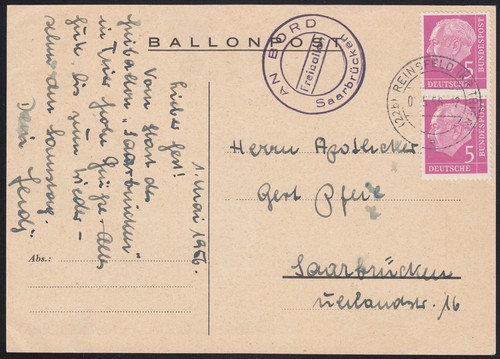 BALLONPOST
AN BORD
Freiballon
Saarbrücken
(22b) REINSFELD
5
DEUTSCHE
BUNDESPOST
5
DEUTSCHE
BUNDESPOST
1. Mai 1956.
Lieber Gert!
Vom Start des
Freiballon „Saarbrücken"
in Trier frohe Grüße. Alles
Gute. Bis zum Wieder-
sehn am Samstag.
Dein
Herrn Apotheker
Gert
Saarbrücken
Uhlandstr. 16
Abs.: